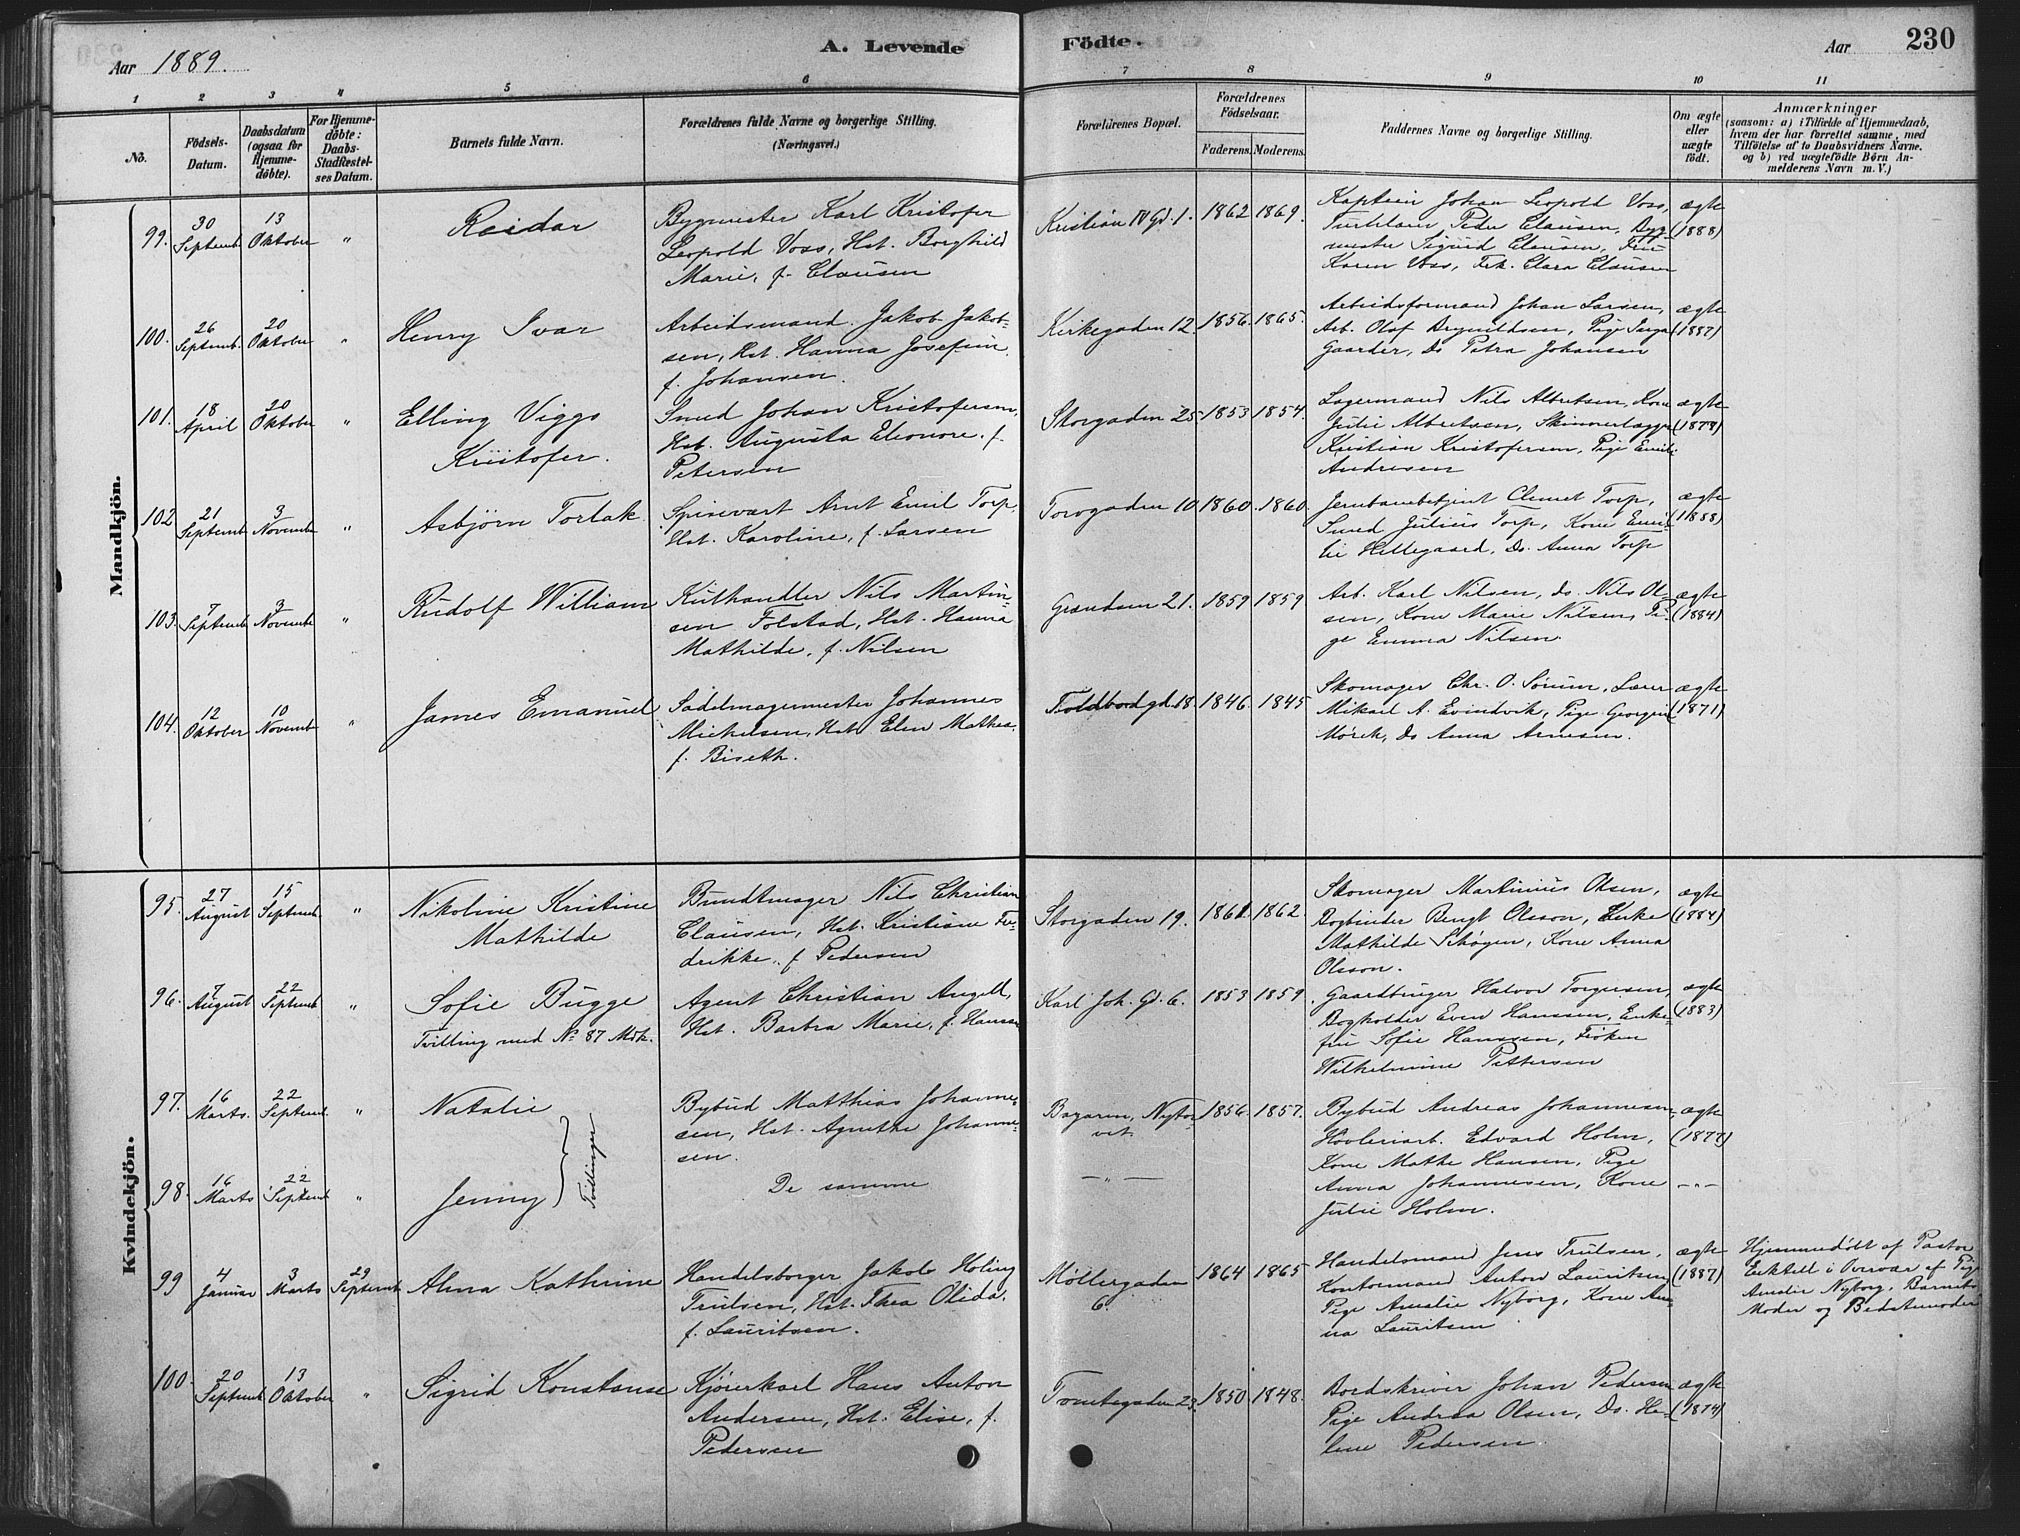 Aar 1889.
A. Levende Födte.
Aar 230
1 2 3 4 5 6 7 8 9 10 11
No.
Födsels-Datum.
Daabsdatum (ogsaa for Hjemme-döbte).
For Hjemme-döbte: Daabs-Stadfæstel-ses Datum.
Barnets fulde Navn.
Forældrenes fulde Navne og borgerlige Stilling.
(Næringsvei.)
Forældrenes Bopæl.
Forældrenes Födselsaar.
Faderens. Moderens.
Faddernes Navne og borgerlige Stilling.
Om ægte eller uægte födt.
Anmærkninger
(saasom: a) i Tilfælde af Hjemmedaab,
hvem der har forrettet samme, med
Tilföielse af to Daabsvidners Navne.
og b) ved uægtefödte Börn An-
melderens Navn m. V.)
Mandkjön.
99. 30 Septemb. 13 Oktober " Reidar
Bygmester Karl Kristofer
Leopold Voss, Hst. Borghild
Marie, f. Clausen
Kristian IV Gd. 1. 1862 1869.
Kaptein Johan Leopold Voss,
Peder Clausen, Byg
mester Sigurd Clausen, Frue
Karen Voss, Frk. Clara Clausen
ægte (1888)
100. 26 Septemb. 20 Oktober " Henry Ivar
Arbeidsmand Jakob Jakob-
sen, Hst. Hanna Josefine
f. Johansen.
Kirkegaden 12. 1856. 1865.
Arbeidsformand Johan Larsen,
Arb. Olaf Brynildsen, Pige Inga
Gaarder, Do Petra Johansen
ægte (1887)
101. 18 April 20 Oktober " Elling Viggo
Kristofer.
Smed Johan Kristofersen,
Hst. Augusta Eleonore, f.
Petersen
Storgaden 25. 1853 1854.
Lagermand Nils Albertsen, Kone
Julie Albertsen,
Kristian Kristofersen, Pige Emilie
Andresen
ægte (1878)
102 21 Septemb 3 Novembr " Asbjörn Torlak
Spisevært Arnt Emil Torp,
Hst. Karoline, f. Larsen
Torvgaden 10 1860. 1860.
Jernbanebetjent Clemet Torp,
Smed Julius Torp, Kone Emi-
lie Hellegaard, Do. Anna Torp
ægte (1888)
103. 7 Septemb 3 Novembr " Rudolf William
Kuthandler Nils Martin-
sen Folstad, Hst. Hanna
Mathilde, f. Nilsen
Grændsen 21. 1859 1859
Arb. Karl Nilsen, do. Nils Ol-
sen, Kone Marie Nilsen, Pi-
ge Emma Nilsen.
ægte (1884)
104. 12 Oktober 10 Novemb " James Emanuel
Sadelmagermester Johannes
Mickelsen, Hst. Elen Mathea,
f. Biseth.
Toldbod gd. 18. 1846. 1845
Skomager Chr. O. Sörum, Lærer
Mikael A. Evindvik, Pige Georgine
Mörch, Do Anna Arnesen.
ægte (1871)
Kvindekjön.
95. 27 August 15 Septemb " Nikoline Kristine
Mathilde
Bundtmager Nils Christian
Clausen, Hst. Kristiane Fre-
drikke, f. Pedersen
Storgaden 19. 1861. 1862.
Skomager Martinius Olsen,
Bogbinder Bengt Olsson, Enke
Mathilde Skögen, Kone Anna
Olsson.
ægte (1884)
96. 7 August 22 Septemb " Sofie Bugge
Tvilling med No 87 Mdk.
Agent Christian Angell,
Hst. Barbra Marie, f. Hansen
Karl Joh. Gd. 6. 1853 1859
Gaardbruger Halvor Torgersen
Bogholder Even Hanssen, Enke-
frue Sofie Hanssen, Fröken
Wilhelmine Pettersen
ægte (1883)
97. 16 Marts. 22 Septemb. " Natalie
Tvillinger
Bybud Matthias Johanne-
sen, Hst. Agnethe Johanne-
sen.
Bazaren, Nytor-
vet 1856. 1857.
Bybud Andreas Johannesen,
Hövleriarb. Edvard Holm,
Kone Mathe Hansen, Pige
Anna Johannesen, Kone
Julie Holm.
ægte (1877)
98. 16 Marts 22 Septemb " Jenny
De samme
— " —
— " —
99 4 Januar 3 Marts 29 Septemb. Alma Kathrine
Handelsborger Jakob Holing
Trulsen, Hst. Thea Olida,
f. Lauritsen.
Möllergaden
6. 1864 1865
Handelsmand Jens Trulsen,
Kontormand Anton Lauritsen
Pige Amalie Nyborg, Kone An-
na Lauritsen
ægte (1887)
Hjemmedöbt af Pastor
i Overvær af Pige
Amalie Nyborg, Barnets
Moder og Bedstemoder
100. 20 Septemb 13 Oktober " Sigrid Konstanse
Kjörerkarl Hans Anton
Andersen, Hst. Elise, f.
Pedersen
Tomtegaden 23. 1850. 1848.
Bordskriver Johan Pedersen
Pige Andrea Olsen, Do. He-
lene Pedersen.
ægte (1874)